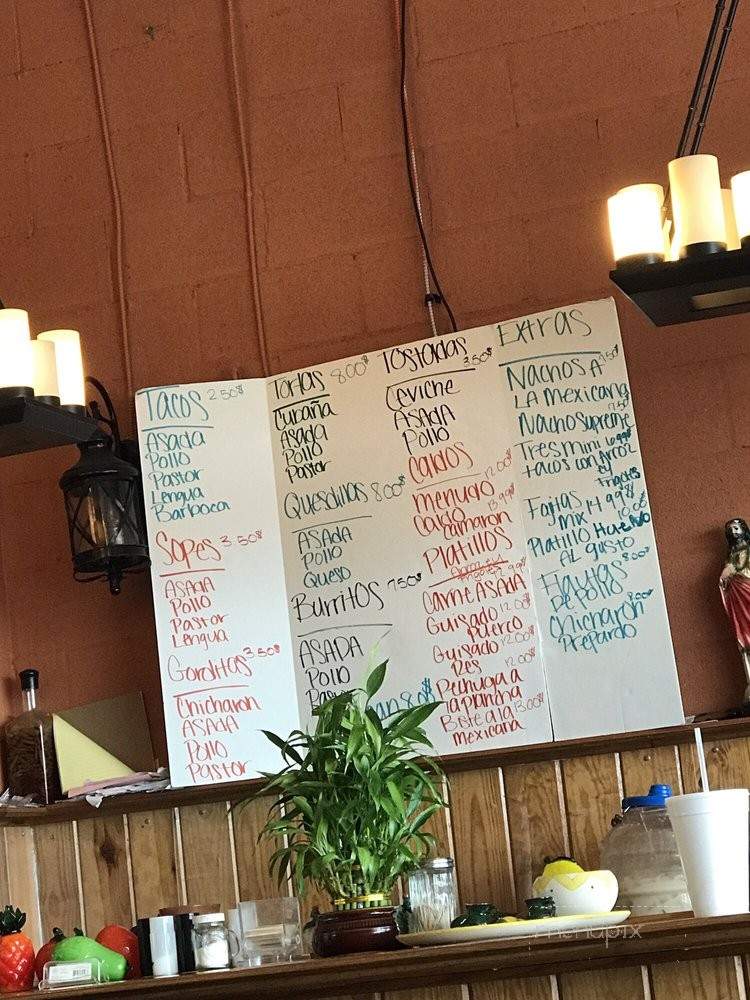 Tacos 2.50$
Asada
Pollo
Pastor
Lengua
Barbaca
Sopes 3.50$
ASADA
Pollo
Pastor
Lengua
Gorditas 3.50$
Chicharon
ASADA
Pollo
Pastor
Tortas 8.00$
Cubaña
Asada
Pollo
Pastor
Quesdillas 8.00$
ASADA
Pollo
Queso
Burritos 7.50$
ASADA
Pollo
Tostadas 3.50$
Ceviche
ASADA
Pollo
Caldos
Menudo 12.00
Caldo 13.99$
Camaron
Platillos
Carne ASADA
Guisado 12.00
Puerco
Guisado 12.00$
Res
Pechuga a 12.00
la plancha
Biste a la 13.00$
Mexicana
Extras
Nachos A
LA Mexicana
Nacho Supreme
Tres mini
tacos con Arroz
y
Frijoles
Fajitas 14.99$
Mix
Platillo Huevo 10.00
AL gusto
Flautas 8.00$
De Pollo
Chicharon 8.00$
Prepardo
menupix